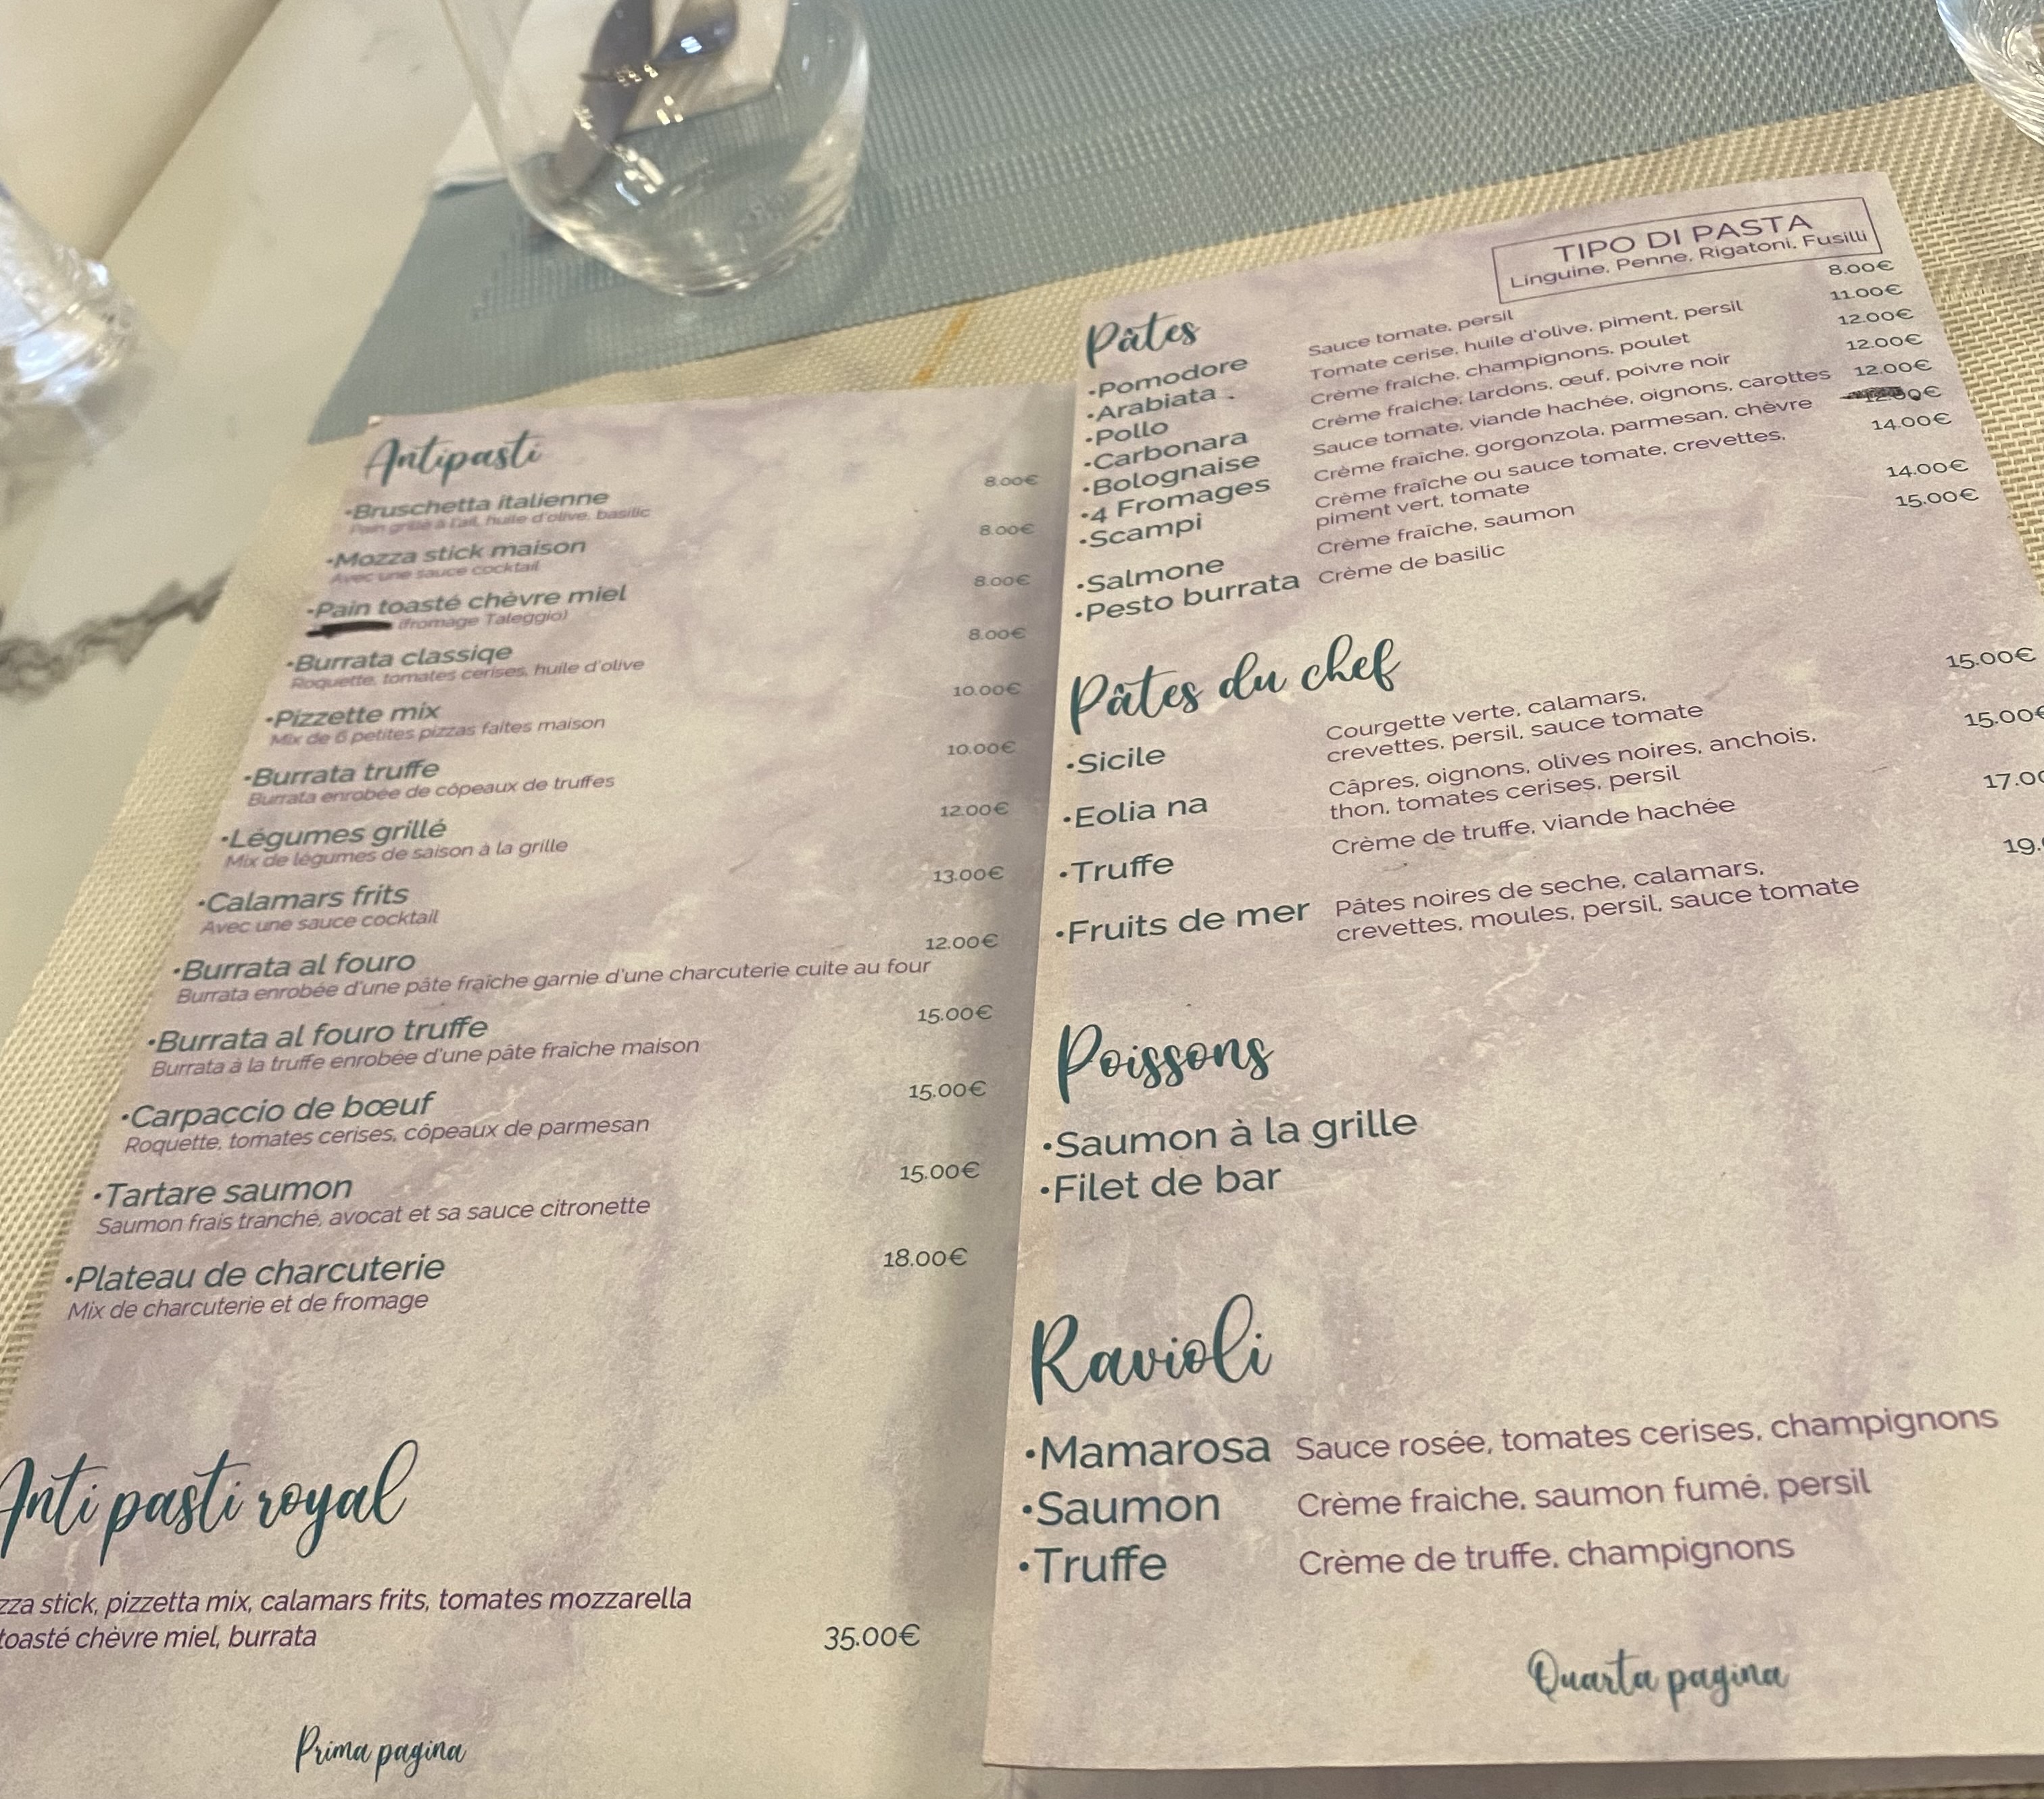 Antipasti
•Bruschetta italienne 8.00€
Pain grillé à l'ail, huile d'olive, basilic
•Mozza stick maison 8.00€
Avec une sauce cocktail
•Pain toasté chèvre miel 8.00€
(fromage Taleggio)
•Burrata classiqe 8.00€
Roquette, tomates cerises, huile d'olive
•Pizzette mix 10.00€
Mix de 6 petites pizzas faites maison
•Burrata truffe 10.00€
Burrata enrobée de côpeaux de truffes
•Légumes grillé 12.00€
Mix de légumes de saison à la grille
•Calamars frits 13.00€
Avec une sauce cocktail
•Burrata al fouro 12.00€
Burrata enrobée d'une pâte fraîche garnie d'une charcuterie cuite au four
•Burrata al fouro truffe 15.00€
Burrata à la truffe enrobée d'une pâte fraîche maison
•Carpaccio de bœuf 15.00€
Roquette, tomates cerises, côpeaux de parmesan
•Tartare saumon 15.00€
Saumon frais tranché, avocat et sa sauce citronette
•Plateau de charcuterie 18.00€
Mix de charcuterie et de fromage
Anti pasti royal
zza stick, pizzetta mix, calamars frits, tomates mozzarella
toasté chèvre miel, burrata 35.00€
Prima pagina
TIPO DI PASTA
Linguine, Penne, Rigatoni, Fusilli
Pâtes
•Pomodore Sauce tomate, persil 8.00€
•Arabiata . Tomate cerise, huile d'olive, piment, persil 11.00€
•Pollo Crème fraîche, champignons, poulet 12.00€
•Carbonara Crème fraiche, lardons, œuf, poivre noir 12.00€
•Bolognaise Sauce tomate, viande hachée, oignons, carottes 12.00€
•4 Fromages Crème fraîche, gorgonzola, parmesan, chèvre
•Scampi Crème fraîche ou sauce tomate, crevettes, 14.00€
piment vert, tomate
•Salmone Crème fraîche, saumon 14.00€
•Pesto burrata Crème de basilic 15.00€
Pâtes du chef
•Sicile Courgette verte, calamars, 15.00€
crevettes, persil, sauce tomate
•Eolia na Câpres, oignons, olives noires, anchois, 15.00€
thon, tomates cerises, persil
•Truffe Crème de truffe, viande hachée 17.00
•Fruits de mer Pâtes noires de seche, calamars, 19.
crevettes, moules, persil, sauce tomate
Poissons
•Saumon à la grille
•Filet de bar
Ravioli
•Mamarosa Sauce rosée, tomates cerises, champignons
•Saumon Crème fraiche, saumon fumé, persil
•Truffe Crème de truffe, champignons
Quarta pagina